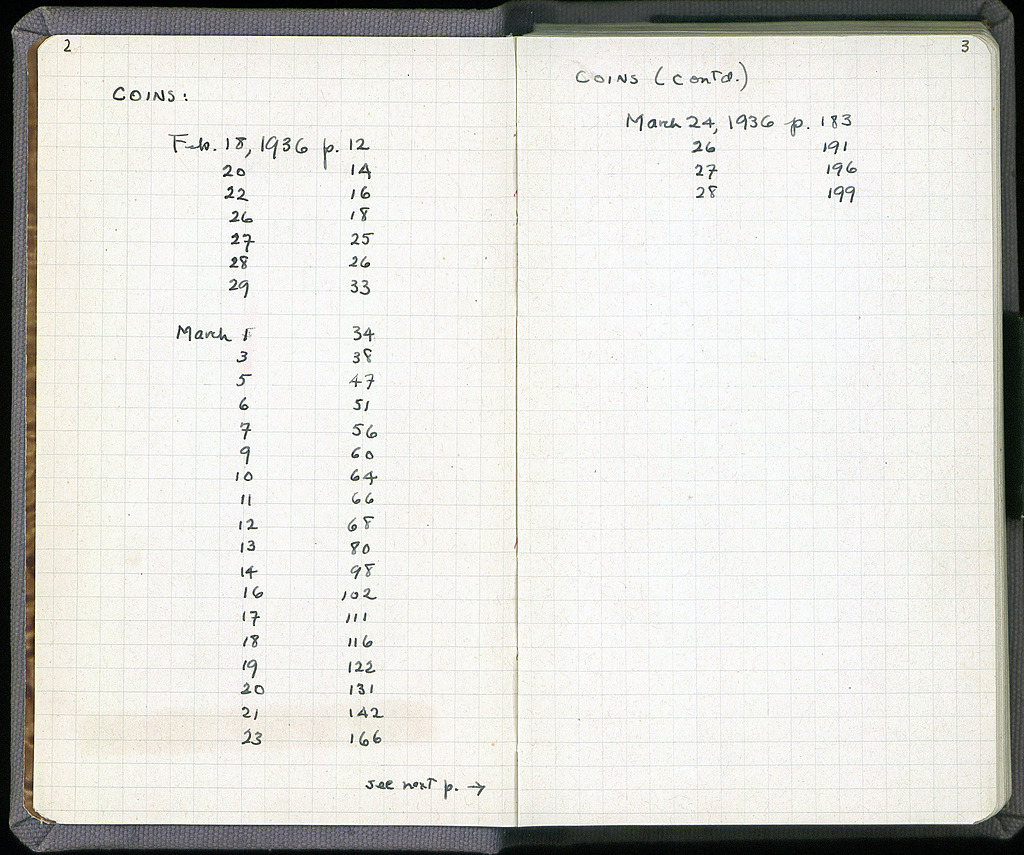 2
COINS:
Feb. 18, 1936 p. 12
20 14
22 16
26 18
27 25
28 26
29 33
March 1 34
3 38
5 47
6 51
7 56
9 60
10 64
11 66
12 68
13 80
14 98
16 102
17 111
18 116
19 122
20 131
21 142
23 166
see next p. →
3
COINS (contd.)
March 24, 1936 p. 183
26 191
27 196
28 199